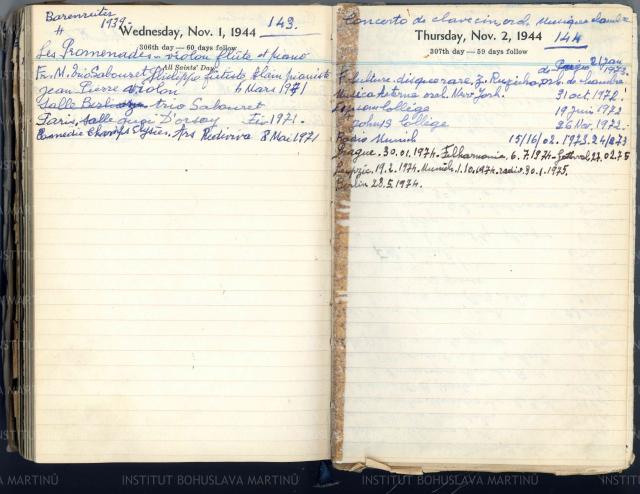 Barenreiter
# 1939.
143.
Wednesday, Nov. 1, 1944
306th day — 60 days follow
All Saints' Day
Les Promenades - violon flûte et piano
Fr. M. Trio Sabouret Philippe flûtiste Alain pianiste
Jean Pierre violon 6 Mars 1971
Salle trio Sabouret
Paris, salle quai D'orsay 1971
Comedie Champs Elysées, Ars Rediviva 8 Mai 1971
Concerto de clavecin, orch. Musique chambre
144
Thursday, Nov. 2, 1944
307th day — 59 days follow
2 Jan 1973.
F. Culture. disque rare, Z. Ruzicka, orch. de chambre
Musica Aeterna orch. New York. 31 oct. 1972
College 19 Juin 1972
John's College 26 Nov. 1972
Radio Munich 15/16/02. 1973. 24/8/73
Prague. 30.01.1974. Filharmonia. 6.7.1974. 27.02.75
Leipzig. 19.2.1974. Munich. 1.10.1974. radio. 30.1.1975.
Berlin 28.5.1974.
INSTITUT BOHUSLAVA MARTINŮ
INSTITUT BOHUSLAVA MARTINŮ